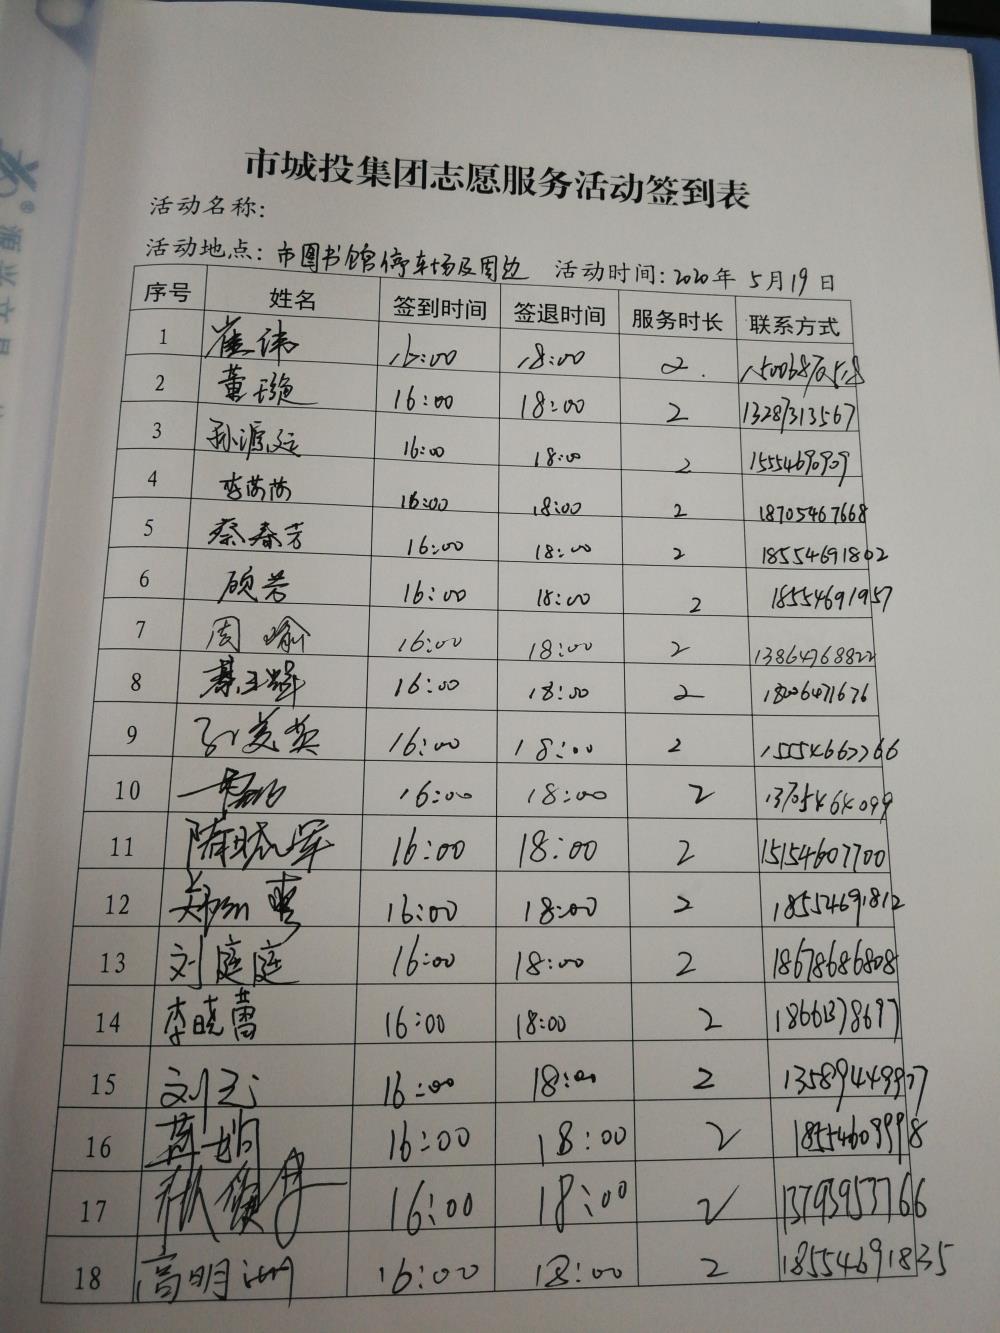 市城投集团志愿服务活动签到表
活动名称:
活动地点: 市图书馆停车场及周边 活动时间:2020年 5月19日
序号 姓名 签到时间 签退时间 服务时长 联系方式
1 崔伟 16:00 18:00 2
2 董璇 16:00 18:00 2 13287313567
3 孙源远 16:00 18:00 2 15554690909
4 李芮芮 16:00 18:00 2 18705467668
5 蔡春芳 16:00 18:00 2 18554691802
6 顾芳 16:00 18:00 2 18554691957
7 周喻 16:00 18:00 2 13864768822
8 16:00 18:00 2 18206471676
9 孙美英 16:00 18:00 2 15554667766
10 16:00 18:00 2 13705464099
11 隋晓军 16:00 18:00 2 15154607700
12 16:00 18:00 2 18554691812
13 刘庭庭 16:00 18:00 2 18678686808
14 李晓蕾 16:00 18:00 2 18661378697
15 刘云 16:00 18:00 2 13589449977
16 燕娟 16:00 18:00 2 18554609998
17 16:00 18:00 2 13793953766
18 高明洲 16:00 18:00 2 18554691835